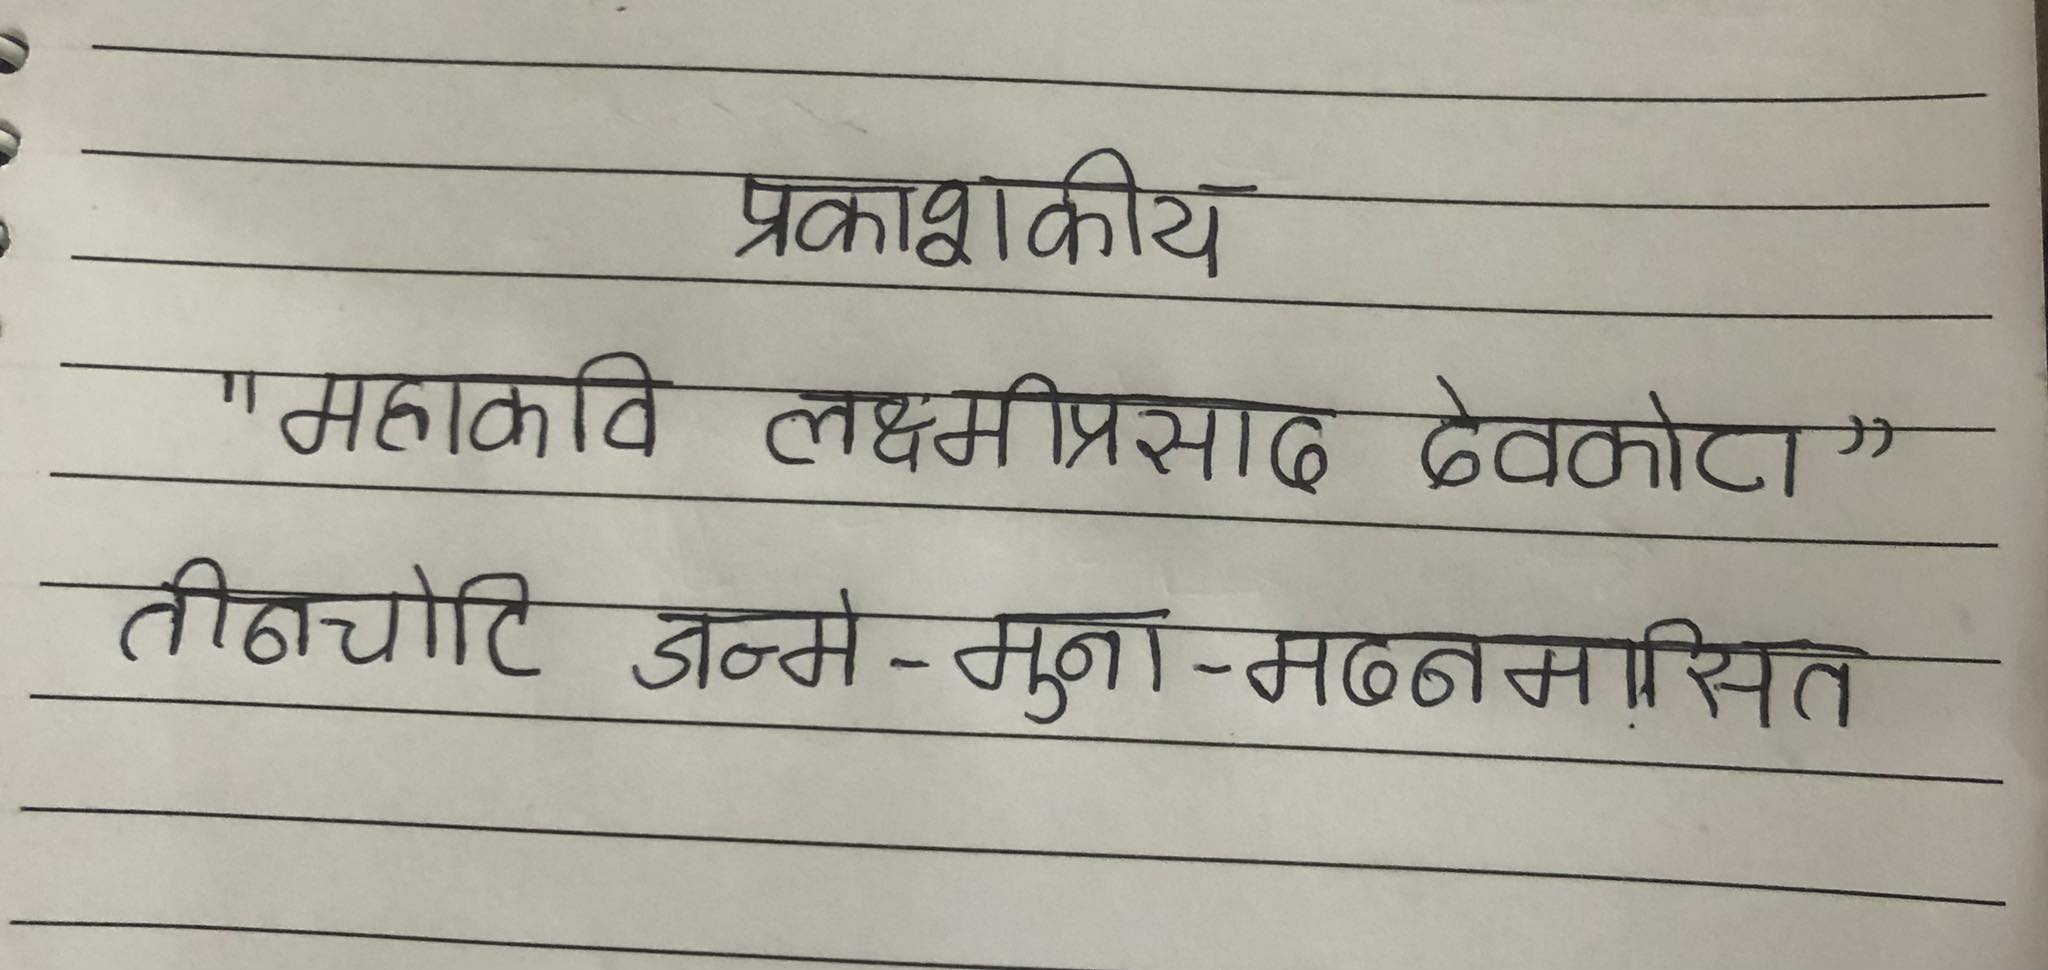 प्रकाशकीय
"महाकवि लक्ष्मीप्रसाद देवकोटा"
तीनचोटि जन्मे - मुना - मदनमासित